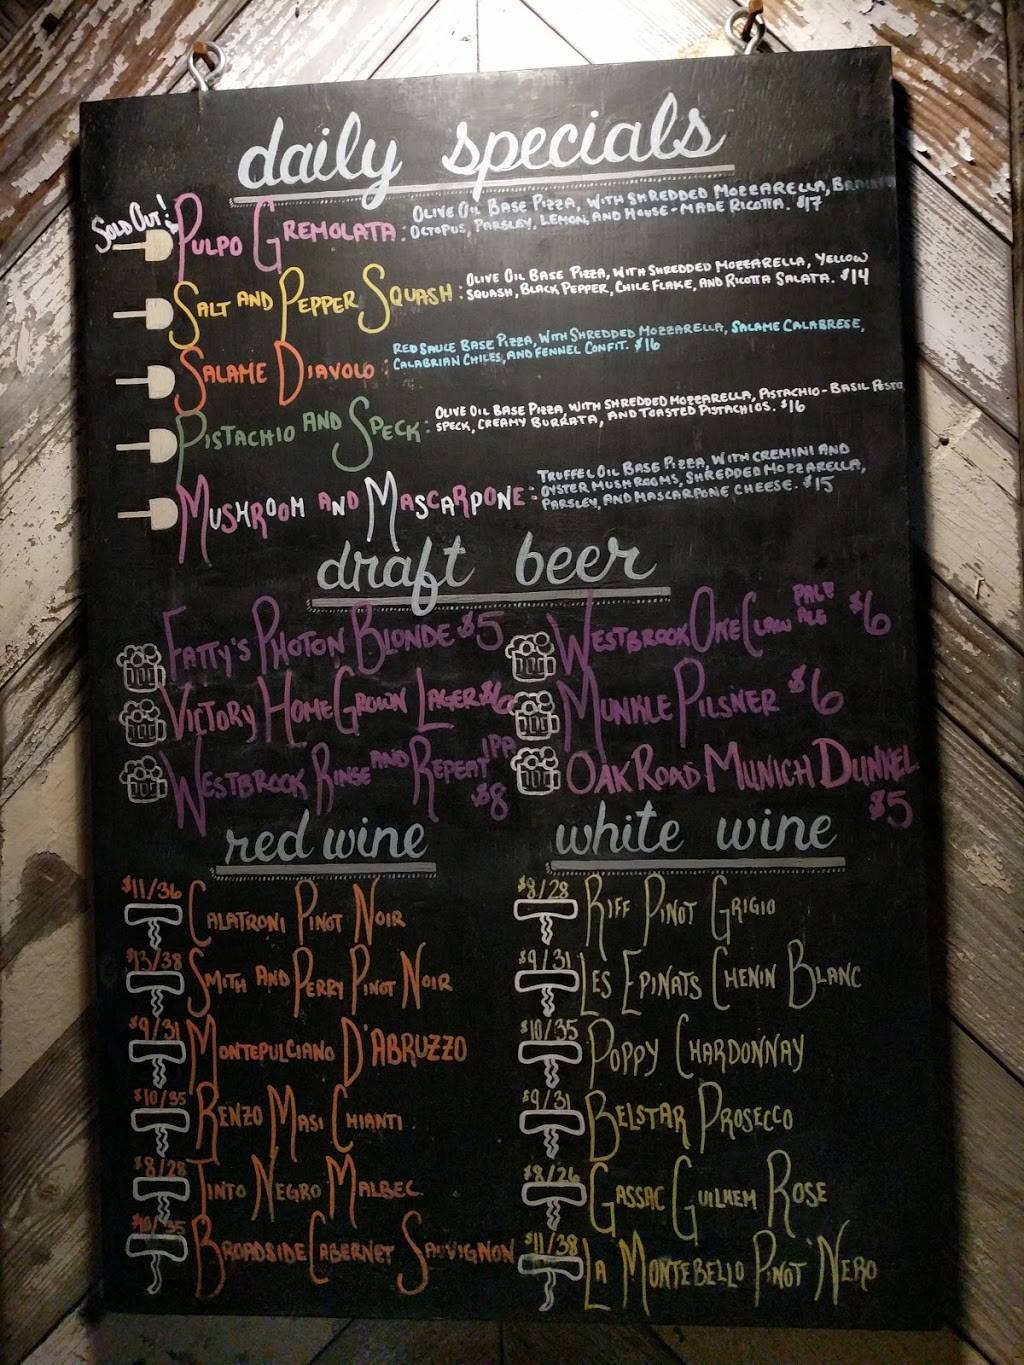 daily specials
Sold Out!
Pulpo Gremolata: Olive Oil Base Pizza, with Shredded Mozzarella,
Octopus, Parsley, Lemon, and House-Made Ricotta. $17
Salt and Pepper Squash: Olive Oil Base Pizza, with Shredded Mozzarella, Yellow
Squash, Black Pepper, Chile Flake, and Ricotta Salata. $14
Salame Diavolo: Red Sauce Base Pizza, with Shredded Mozzarella, Salame Calabrese,
Calabrian Chiles, and Fennel Confit. $16
Pistachio and Speck: Olive Oil Base Pizza, with Shredded Mozzarella, Pistachio-Basil Pesto
Speck, Creamy Burrata, and Toasted Pistachios. $16
Mushroom and Mascarpone: Truffel Oil Base Pizza, with Cremini and
Oyster Mushrooms, Shredded Mozzarella,
Parsley, and Mascarpone Cheese. $15
draft beer
Fatty's Photon Blonde $5
Victory Home Grown Lager $6
Westbrook Rinse and Repeat IPA $8
Westbrook One Claw Pale Ale $6
Munkle Pilsner $6
Oak Road Munich Dunkel $5
red wine
$11/36 Calatroni Pinot Noir
$13/38 Smith and Perry Pinot Noir
$9/31 Montepulciano D'Abruzzo
$10/35 Renzo Masi Chianti
$8/28 Tinto Negro Malbec
$10/35 Broadside Cabernet Sauvignon
white wine
$8/28 Riff Pinot Grigio
$9/31 Les Epinats Chenin Blanc
$10/35 Poppy Chardonnay
$9/31 Belstar Prosecco
$8/26 Gassac Guilhem Rose
$11/38 La Montebello Pinot Nero